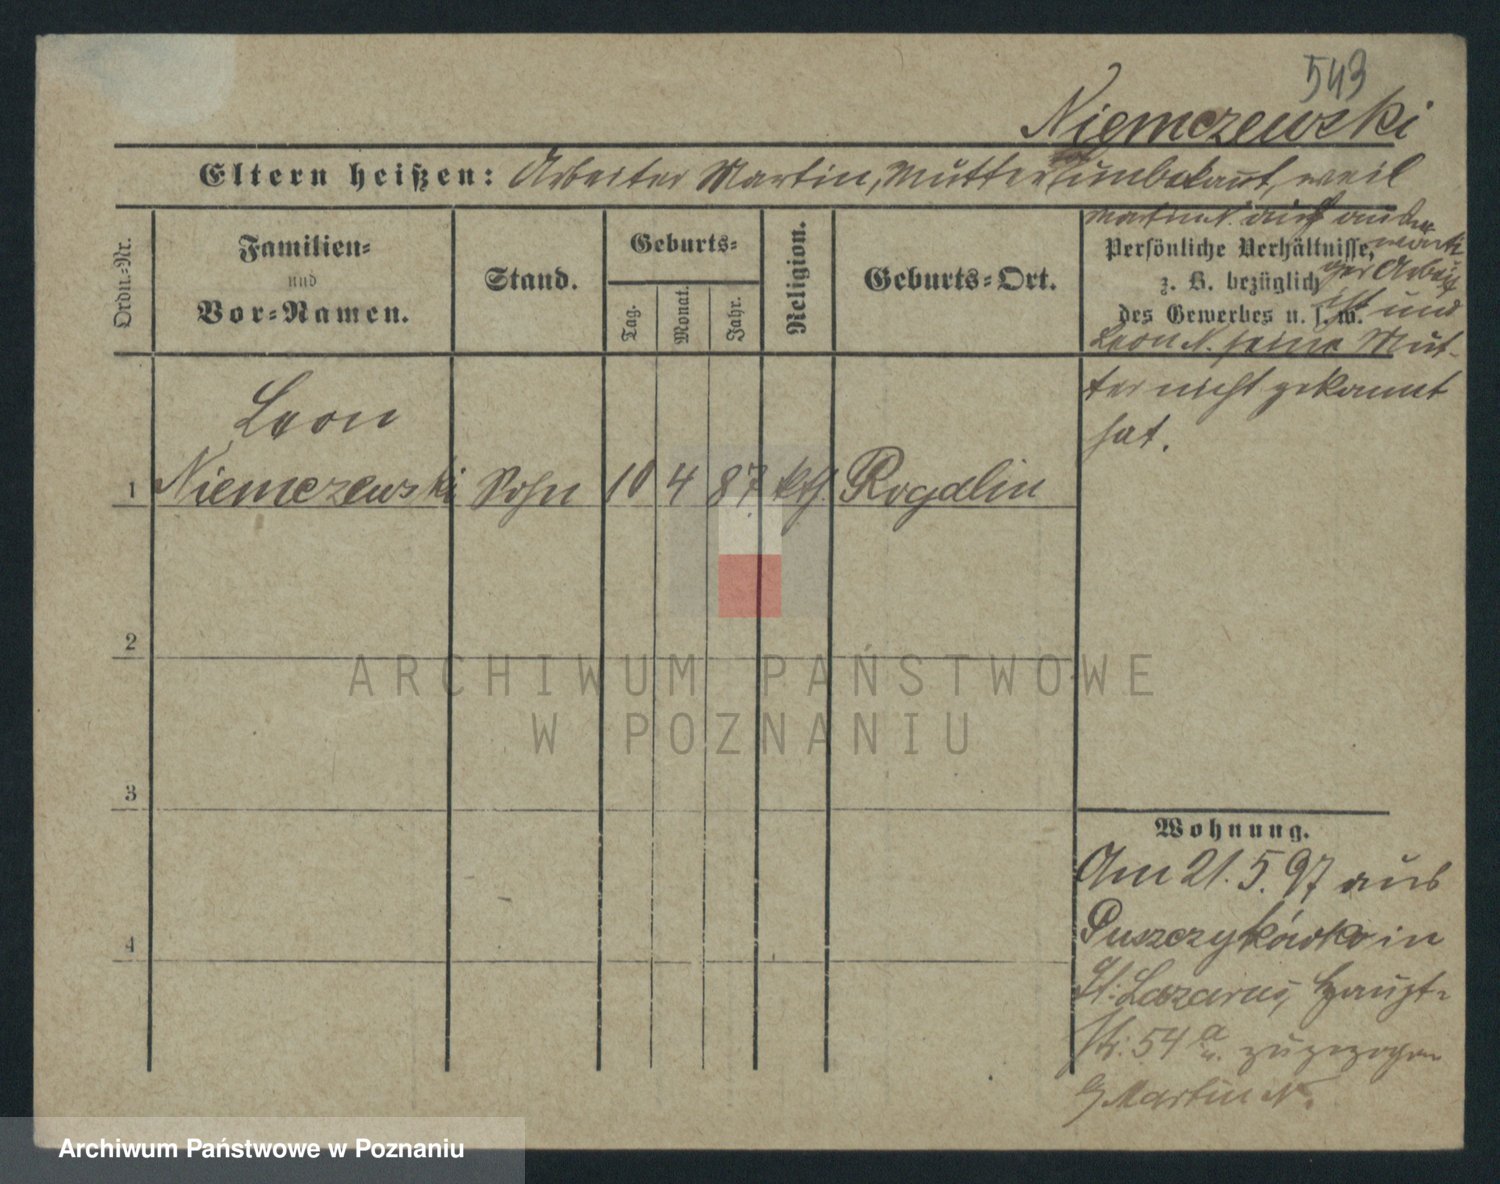 543
Niemczewski
Eltern heißen: Arbeiter Martin, Mutter unbekannt, weil
Martin N. auf
Arbeit
ist und
Leon N. seine Mut-
ter nicht gekannt
hat.
Ordn.-Nr.
Familien-
und
Vor-Namen.
Stand.
Geburts-
Tag.
Monat.
Jahr.
Religion.
Geburts-Ort.
Persönliche Verhältnisse,
z. B. bezüglich
des Gewerbes u. s. w.
Leon
1 Niemczewski Sohn 10 4 87 kth. Rogalin
2
3
4
Wohnung.
Am 21. 5. 97 aus
Puszczykówko in
St. Lazarus, Haupt-
str. 54 a zugezogen
Martin N.
ARCHIWUM PAŃSTWOWE
W POZNANIU
Archiwum Państwowe w Poznaniu